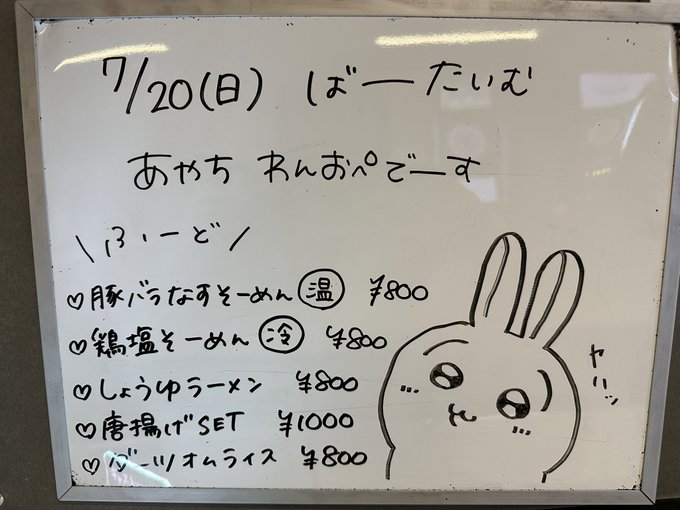 7/20(日) ばーたいむ
あやち わんおぺでーす
\ふーど/
♡豚バラなすそーめん 温 ¥800
♡鶏塩そーめん 冷 ¥800
♡しょうゆラーメン ¥800
♡唐揚げSET ¥1000
♡ オムライス ¥800
ヤハッ